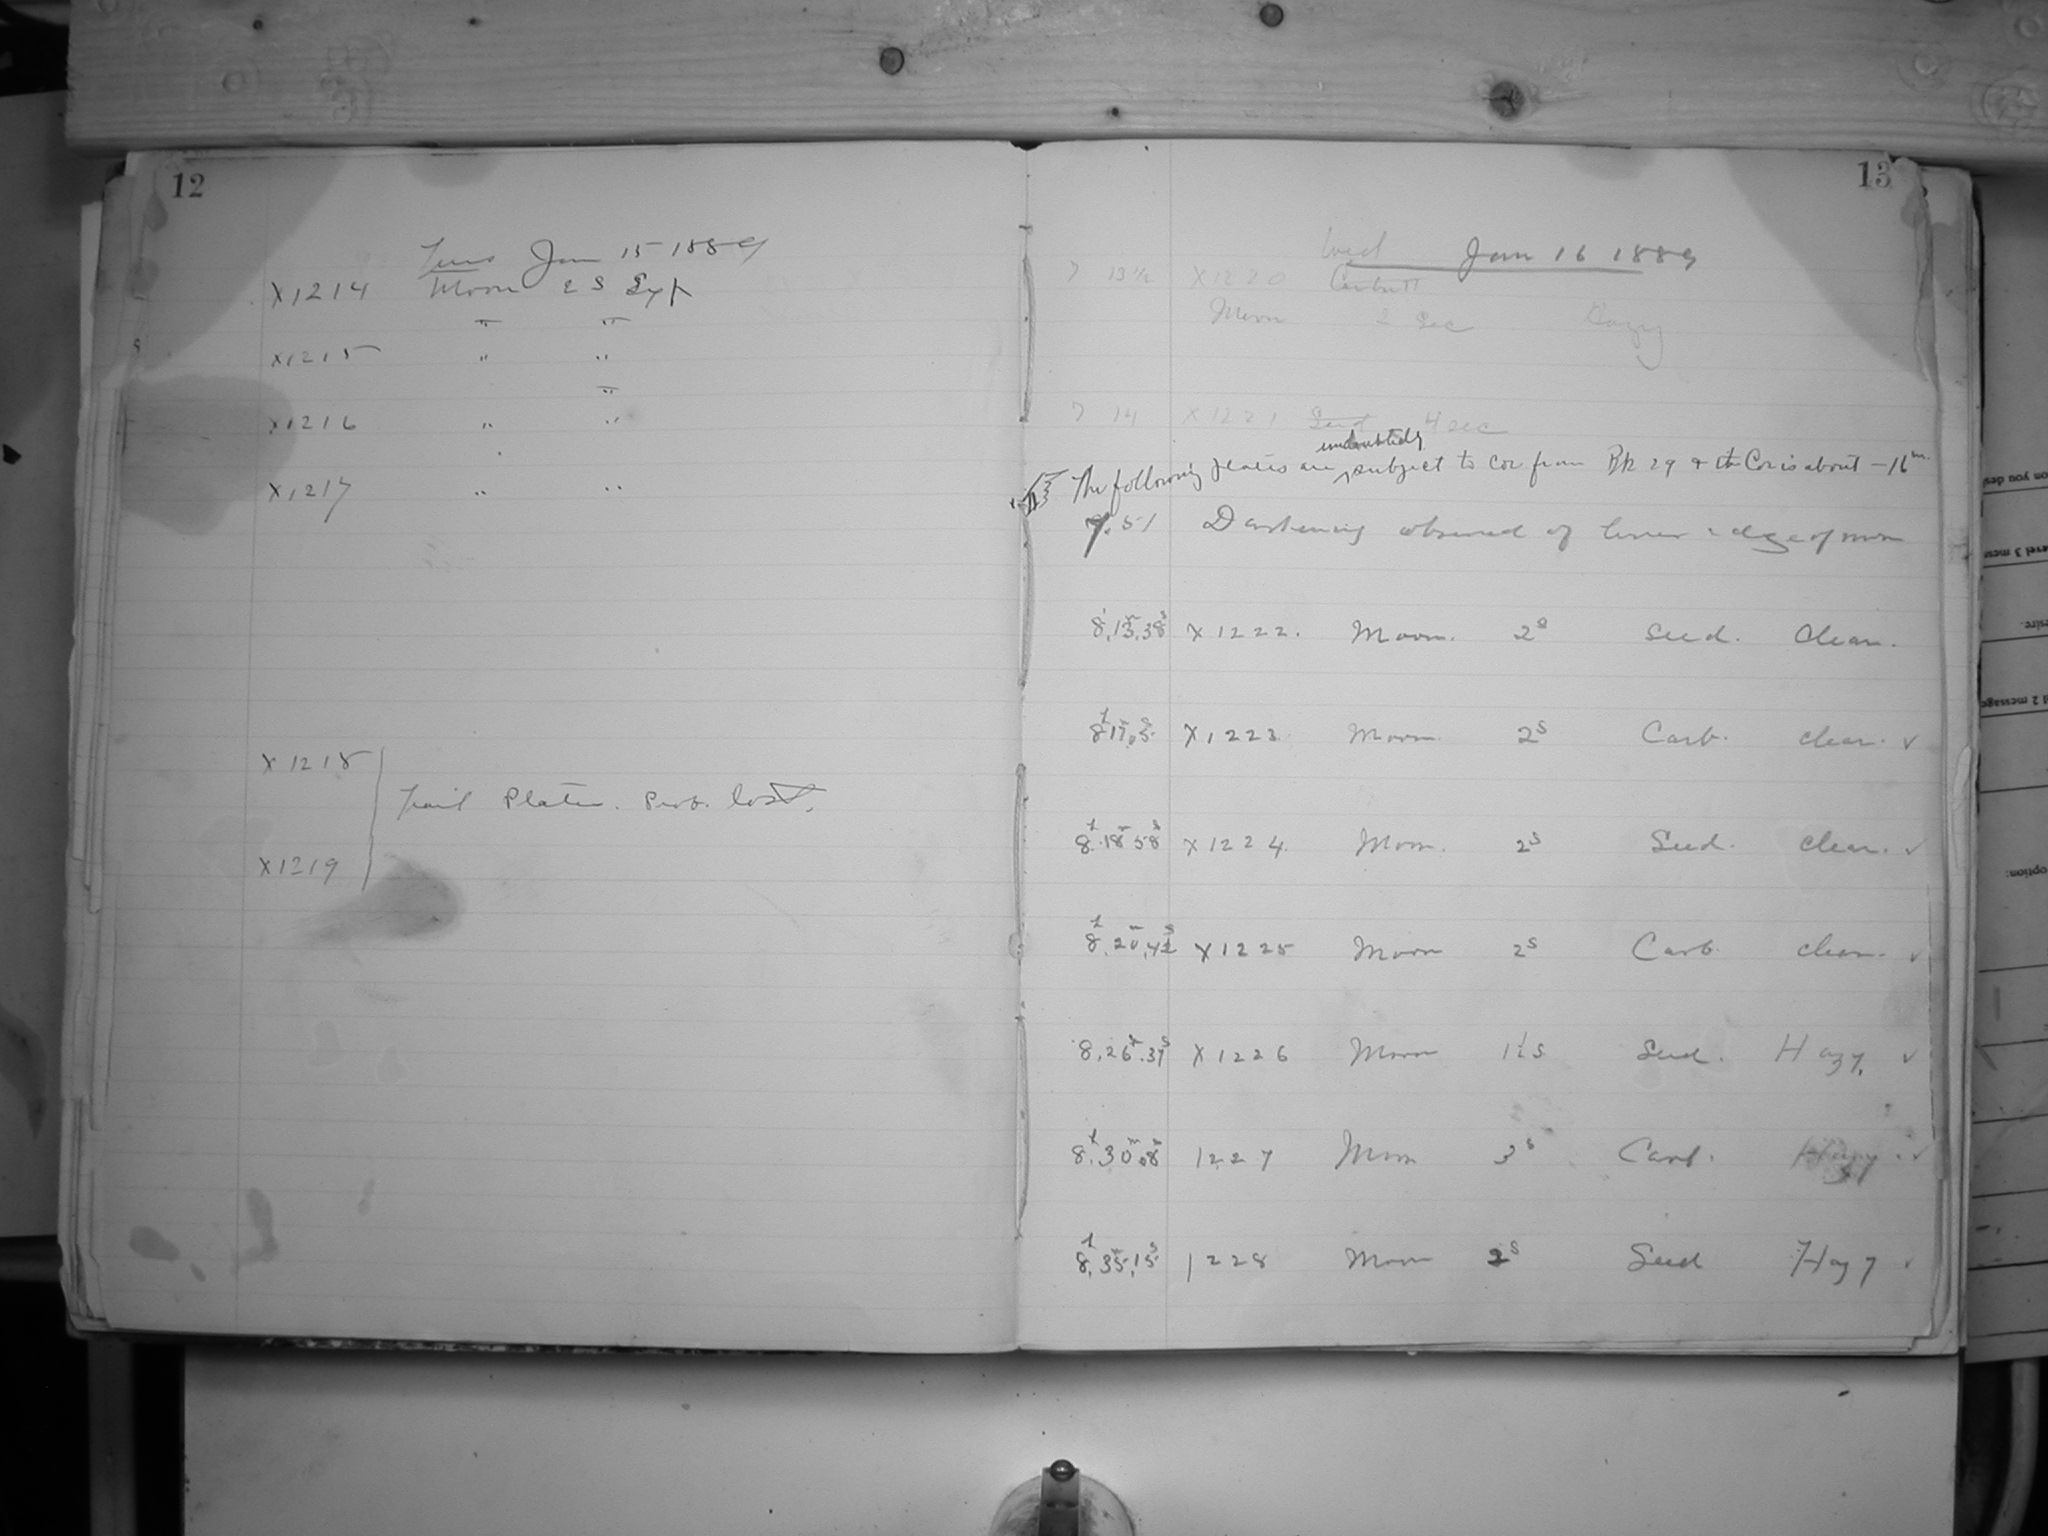 12
Tues Jan 15 1889
X1214 Moon 2 S Exp
" "
X1215 " "
"
X1216 " "
X1217 " "
X1218
Trail Plates. Prob. lost.
X1219
13
Wed Jan 16 1889
7 13½ X1220 Carbutt
Moon 2 Sec Hazy
7 14 X1221 Seed 4 sec
undoubtedly
The following plates are subject to cor from Bk 29 & the Cor is about -16m
7.51 Darkening observed of lower edge of moon
8.13m.38s X1222. Moon. 2s Seed. Clear.
8h17m.5s X1223. Moon. 2s Carb. clear. ✓
8h.18m58s X1224. Moon. 2s Seed. clear. ✓
8h.20m.42s X1225 Moon 2s Carb. clear. ✓
8.26m.37s X1226 Moon 1½s Seed. Hazy. ✓
8h.30m.08s 1227 Moon 3s Carb. Hazy. ✓
8h.35m.15s 1228 Moon 2s Seed Hazy ✓